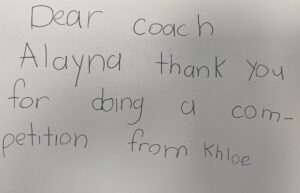 Dear coach
Alayna thank you
for doing a com-
petition from Khloe